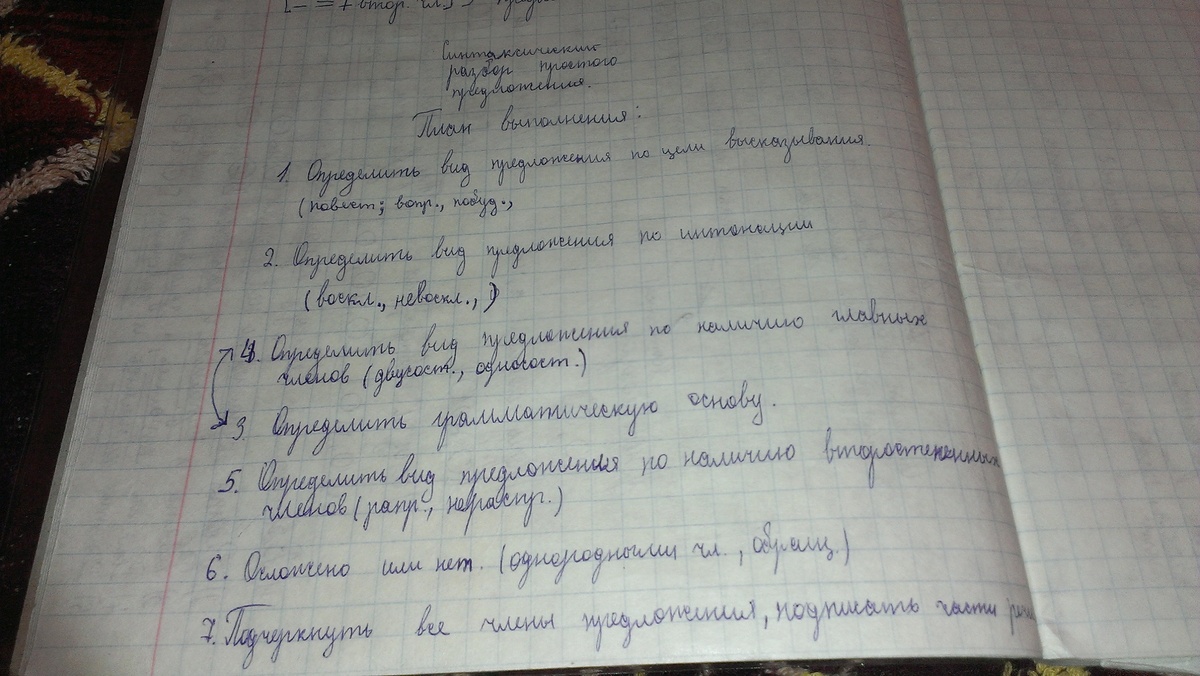 [— = + втор. чл.]
Синтаксический
разбор простого
предложения.
План выполнения:
1. Определить вид предложения по цели высказывания.
(повест; вопр., побуд.,
2. Определить вид предложения по интонации
(воскл., невоскл., )
4. Определить вид предложения по наличию главных
членов (двусост., односост.)
3. Определить грамматическую основу.
5. Определить вид предложения по наличию второстепенных
членов (рапр., нераспр.)
6. Осложнено или нет. (однородными чл., обращ.)
7. Подчеркнуть все члены предложения, подписать части речи